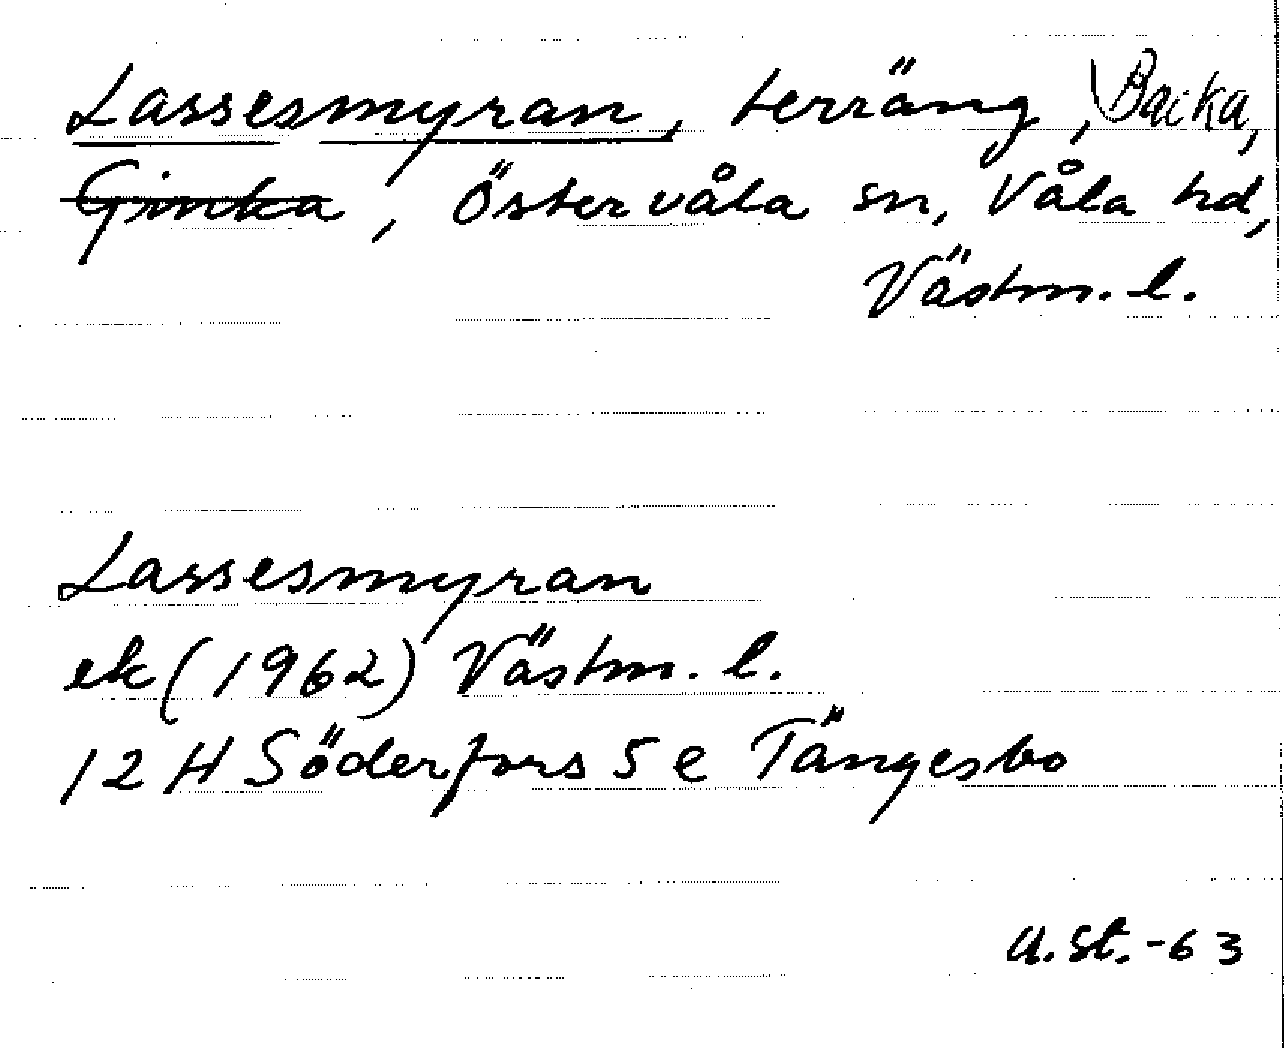 Lassesmyran, terräng, Backa,
Ginka, Östervåla sn, Våla hd,
Västm. l.
Lassesmyran
ek (1962) Västm. l.
12 H Söderfors 5 e Tängesbo
a. St. -63